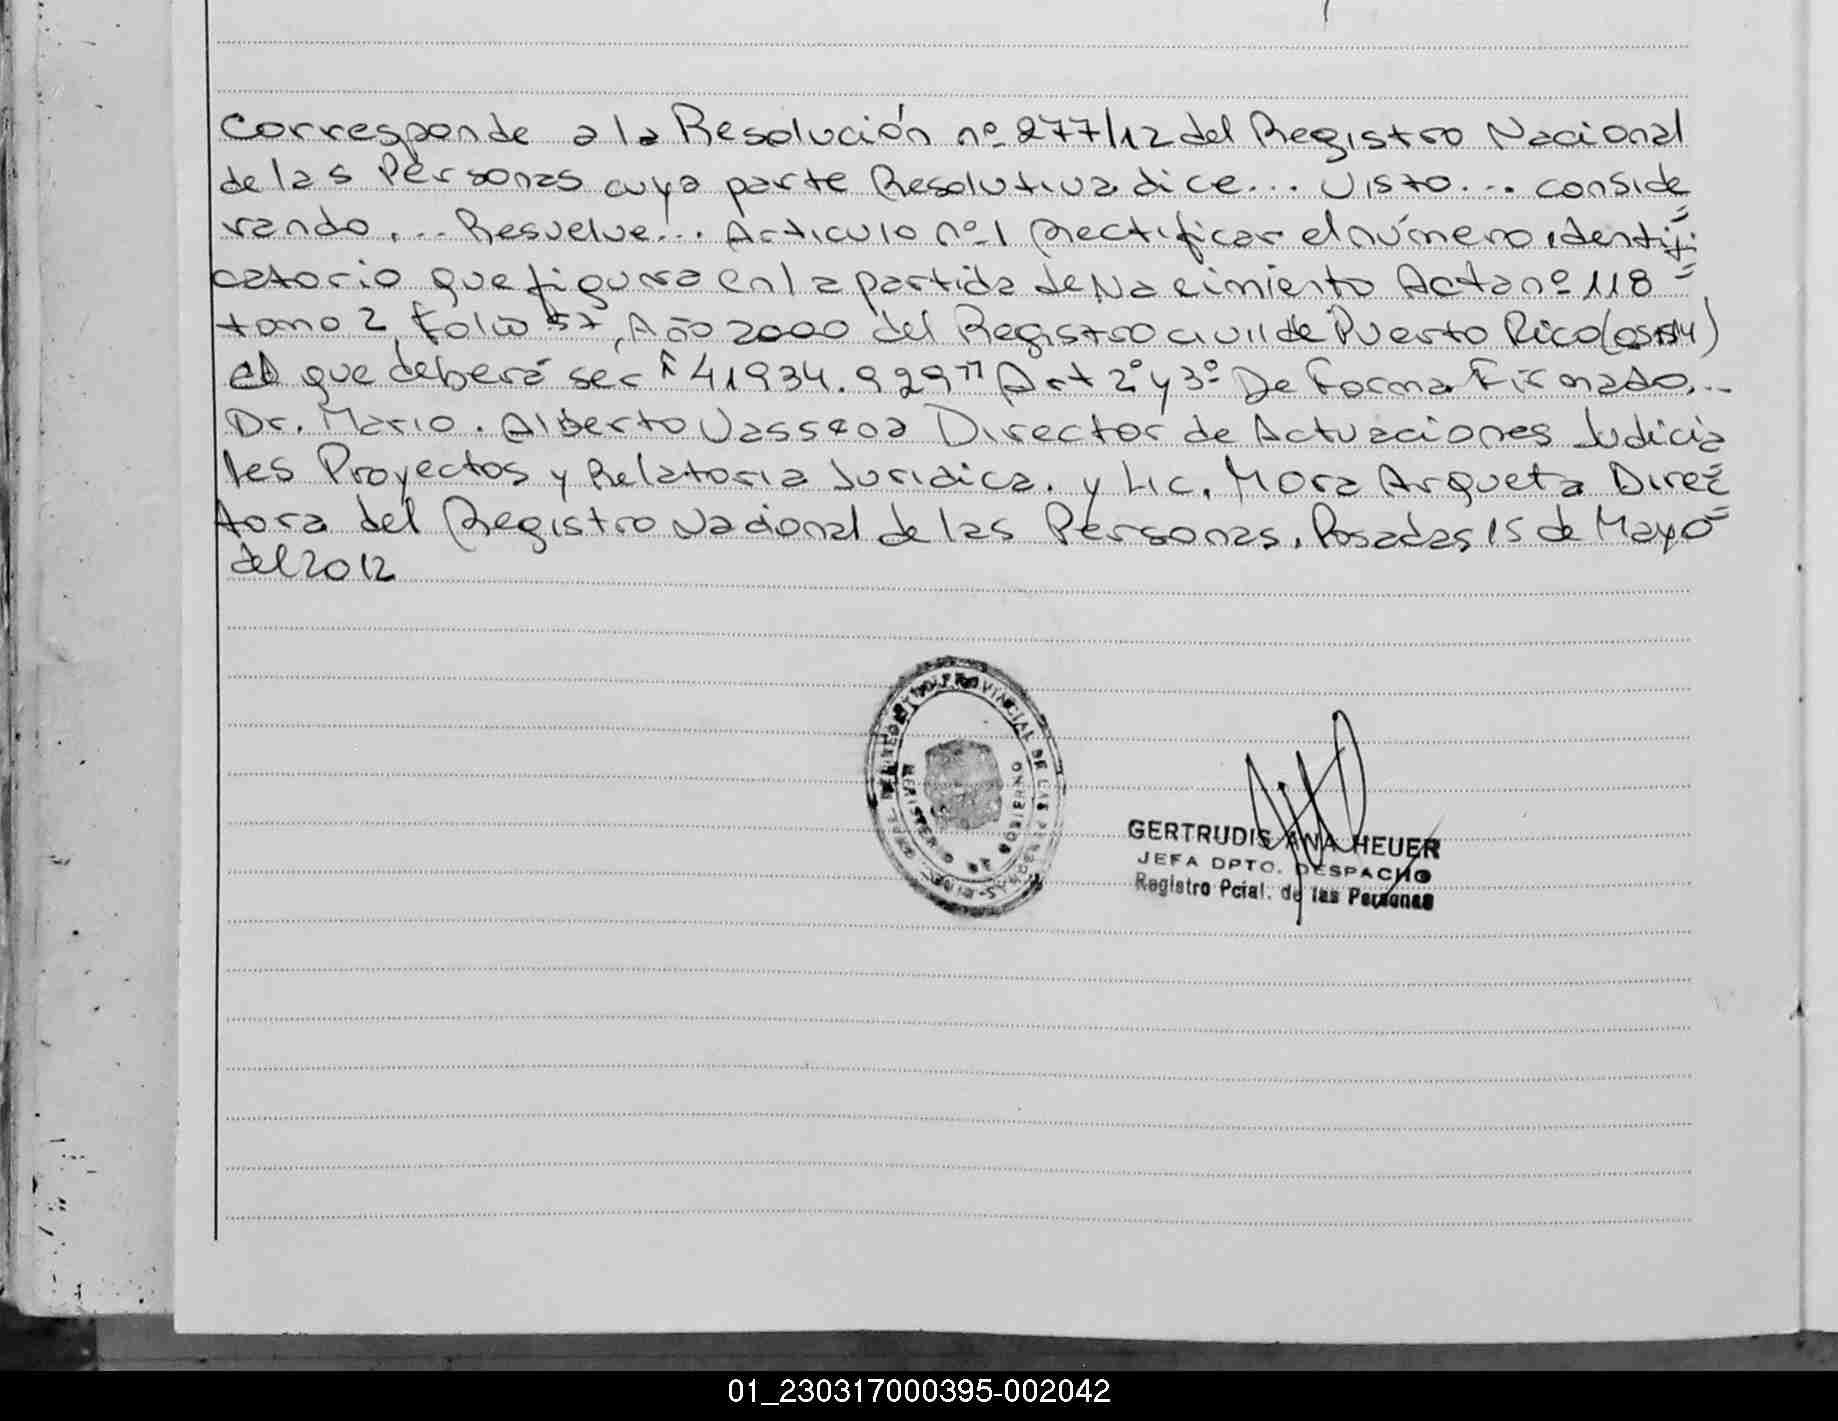 Corresponde a la Resolución nº 277/12 del Registro Nacional
de las Personas cuya parte Resolutiva dice... Visto... conside
rando... Resuelve... Articulo nº 1 Rectificar el número identifi=
catorio que figura en la partida de Nacimiento Acta nº 118=
tomo 2 Folio 57, Año 2000 del Registro civil de Puerto Rico
el que deberá ser "41934.929" Art 2º y 3º De Forma Firmado...
Dr. Mario. Alberto Director de Actuaciones Judicia
les Proyectos y Relatoria Juridica. y Lic. Mora Arqueta Direc=
tora del Registro Nacional de las Personas. Posadas 15 de Mayo=
del 2012
PROVINCIAL DE LAS PERSONAS
MISIONES
GOBIERNO
GERTRUDIS ANA HEUER
JEFA DPTO. DESPACHO
Registro Pcial. de las Personas
01_230317000395-002042